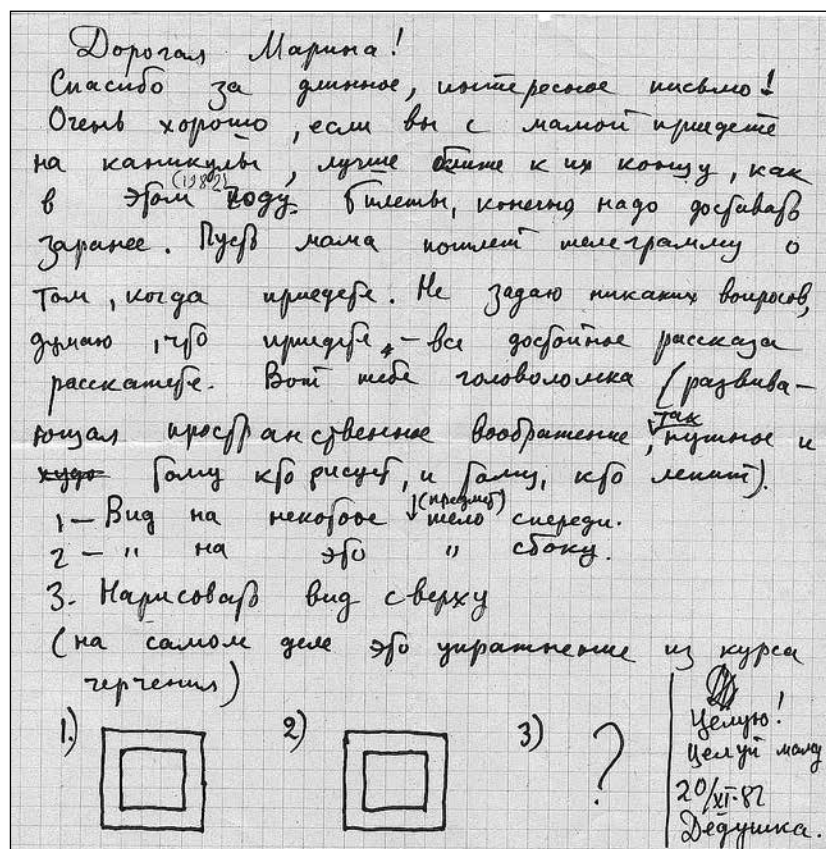 Дорогая Марина!
Спасибо за длинное, интересное письмо!
Очень хорошо, если вы с мамой приедете
на каникулы, лучше ближе к их концу, как
в этом (1982) году. Билеты, конечно надо доставать
заранее. Пусть мама пошлет телеграмму о
том, когда приедете. Не задаю никаких вопросов,
думаю, что приедете, – все достойное рассказа
расскажете. Вот тебе головоломка (развива-
ющая пространственное воображение, так нужное и
тому кто рисует, и тому, кто лепит).
1 – Вид на некоторое тело (предмет) спереди.
2 – " на это " сбоку.
3. Нарисовать вид сверху
(на самом деле это упражнение из курса
черчения)
1.) 2) 3) ?
Целую!
Целуй маму
20/XI-82
Дедушка.